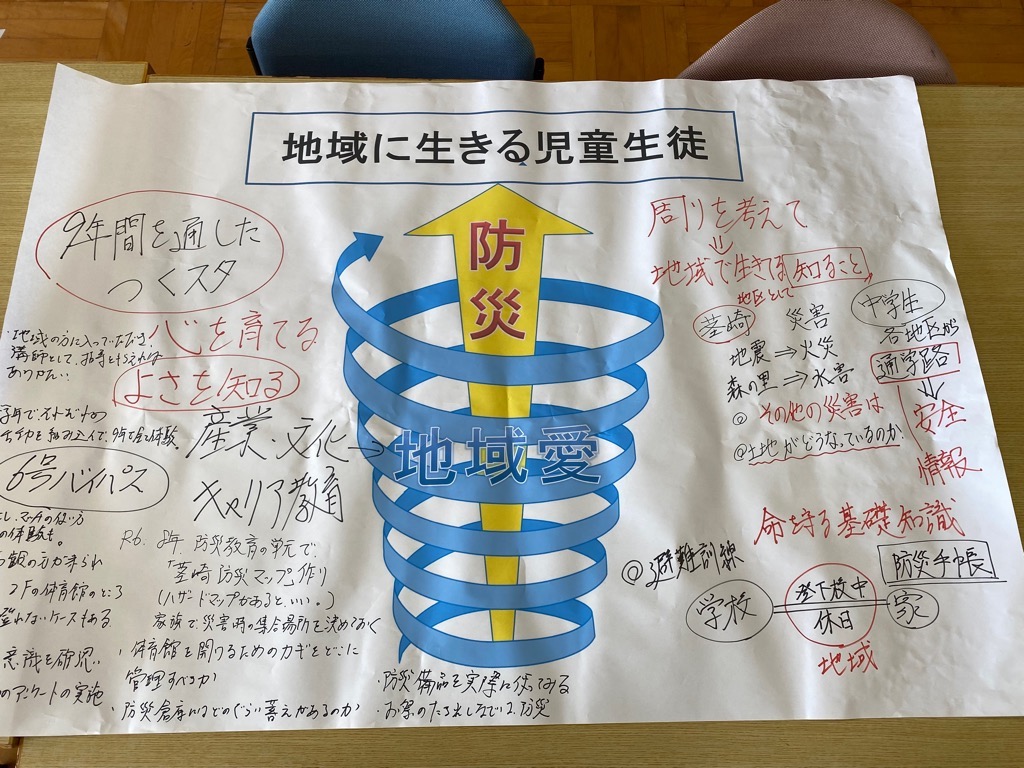 地域に生きる児童生徒
防災
地域愛
9年間を通した
つくスタ
心を育てる
よさを知る
・地域の方に入っていただき!
講師として、お考もらえれば
ありがたい!
学年で
を組み込んで、9年で 体験
産業・文化→
キャリア教育
6号バイパス
マッチの使い方
の体験も。
の方が来られ
2Fの体育館のところ
登れないケースもある
意識を確認。
のアンケートの実施
R6. 8年 防災教育の単元で、
「茎崎防災マップ」作り
(ハザードマップがあるといい。)
家族で災害時の集合場所を決めておく
・体育館を開けるためのカギをどこに
管理すべきか
・防災倉庫にはどのぐらい蓄えがあるのか
・防災備品を実際に使ってみる
周りを考えて
⇓
地域で生きる知ること
地区として
茎崎 災害 中学生
地震⇒火災
森の里⇒水害
各地区が
通学路
⇓
安全
情報
◎その他の災害は
@土地がどうなっているのか.
命を守る基礎知識
◎避難訓練
防災手帳
学校 登下校中 家
休日
地域